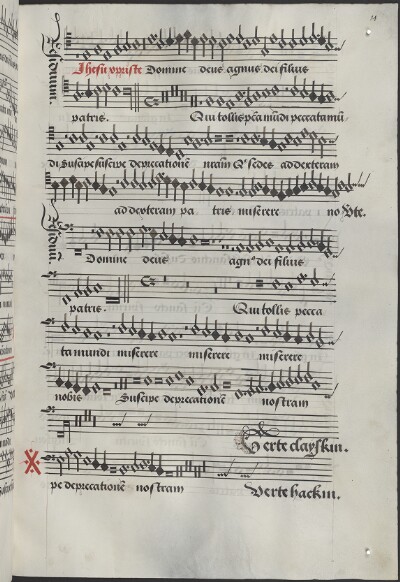 Jhesu xpriste Domine deus agnus dei filius
patris. Qui tollis pcca mūdi peccata mū
di Suscipe suscipe deprecationē nram Q sedes ad dexteram
ad dexteram pa tris miserere no Vte.
Domine deus agn9 dei filius
patris. Qui tollis pecca
ta mundi miserere miserere miserere
nobis Suscipe deprecationē nostram
Verte
pe deprecationē nostram Verte